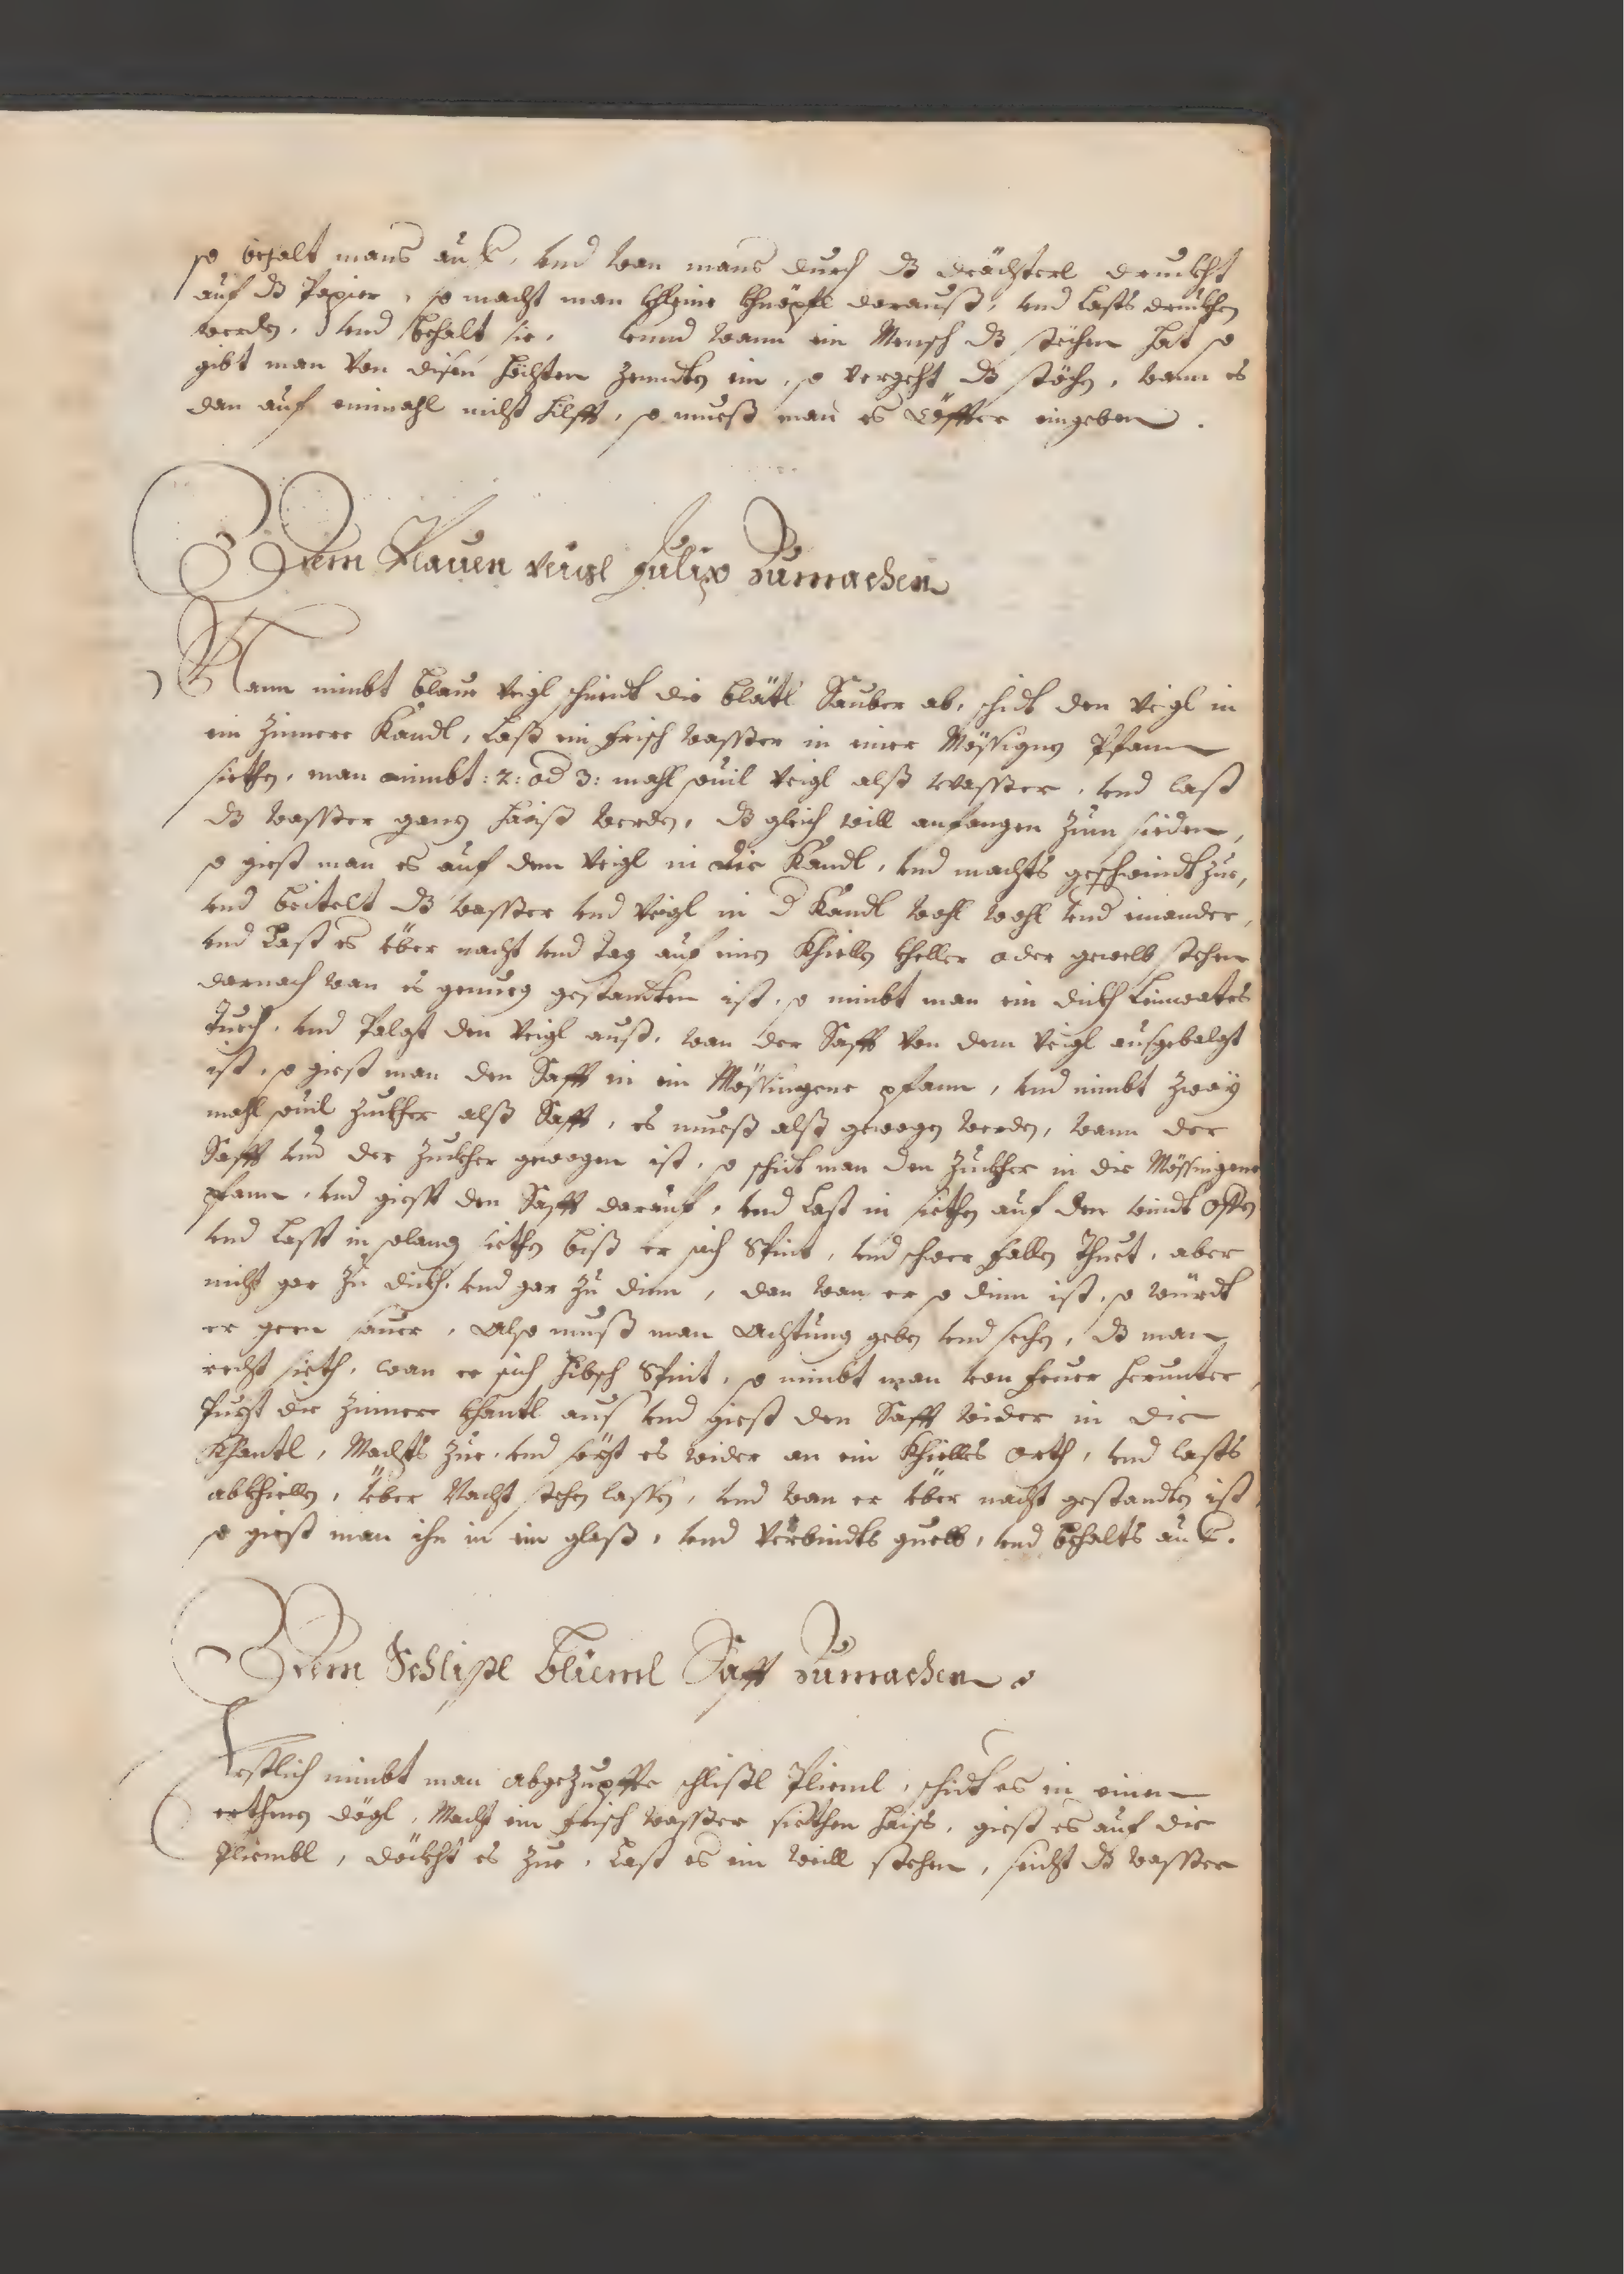 so behalt mans auf, vnd wan mans durch dß drächterl druckht
auf dß Papier, so macht man khleine khnöpfl darauß, vnd lasts druckhen
werden, vnd behalt sie. vnnd wann ein Mensch dß stöchen hat so
gibt man von disen zennden ein, so vergeht dß stöchen, wann es
dan auf einmahl nicht hilfft, so mueß man es öffter eingeben.
Den Plauen veigl Julix Zumachen
Mann nimbt blaue veigl schneidt die blätl Sauber ab, schidt den veigl in
ein Zinnere Kandl, last ein frisch wasser in einer Mössignen Pfann
siethen, man nimbt :2: od 3: mahl souil veigl alß wasser, vnd last
dß wasser ganz haiß werden, dß gleich will anfangen zum sieden,
so giest man es auf den veigl in die Kandl, vnd machts geschwindt zue,
vnd beitelt dß wasser vnd veigl in d Kandl wohl wohl vnd einander,
vnd Last es über nacht vnd tag auf einen Khiellen kheller oder gewelb stehen
darnach wan es genueg gestandten ist, so nimbt man ein dickh Leinwates
Tuech, vnd Palgt den veigl auß, wan der Safft von dem veigl ausgebalgt
ist, so giest man den Safft in ein Mössingene pfann, vnd nimbt zwäy
mahl souil zuckher alß Safft, es mueß alß gewogen werden, wann der
Safft vnd der Zuckher gewogen ist, so schidt man den Zuckher in die Mössingene
pfann, vnd giesst den Safft darauf, vnd Last in siethen auf den windt Offen
vnd Lasst in solang siethen biß er sich Spint, vnd schwer fallen Thuet, aber
nicht gar zu dickh, vnd gar zu dinn, dan wan er so dinn ist, so würdt
er gern sauer, Also muß man Achtung geben vnd sechen, dß man
recht sieth, wan er sich hibsch Spint, so nimbt man von feuer herunter,
Puzt die zinnere khantl aus vnd giest den Safft wider in die
Khantl, Machts zue, vnd sezt es wider an ein Khielles orth, vnd lasts
abkhiellen, über Nacht stehen lassen, vnd wan er über nacht gestandten ist,
so giest man ihn in ein glaß, vnd verbindts guett, vnd behalts auf.
Den Schlißl blüeml Safft Zumachen
Erstlich nimbt man abgezupffte schlißl Plieml, schidt es in einen
erthenen dögl, Macht ein frisch wasser siethen haiß, giest es auf die
Pliembl, döckht es zue, Last es ein weill stehen, seicht dß wasser